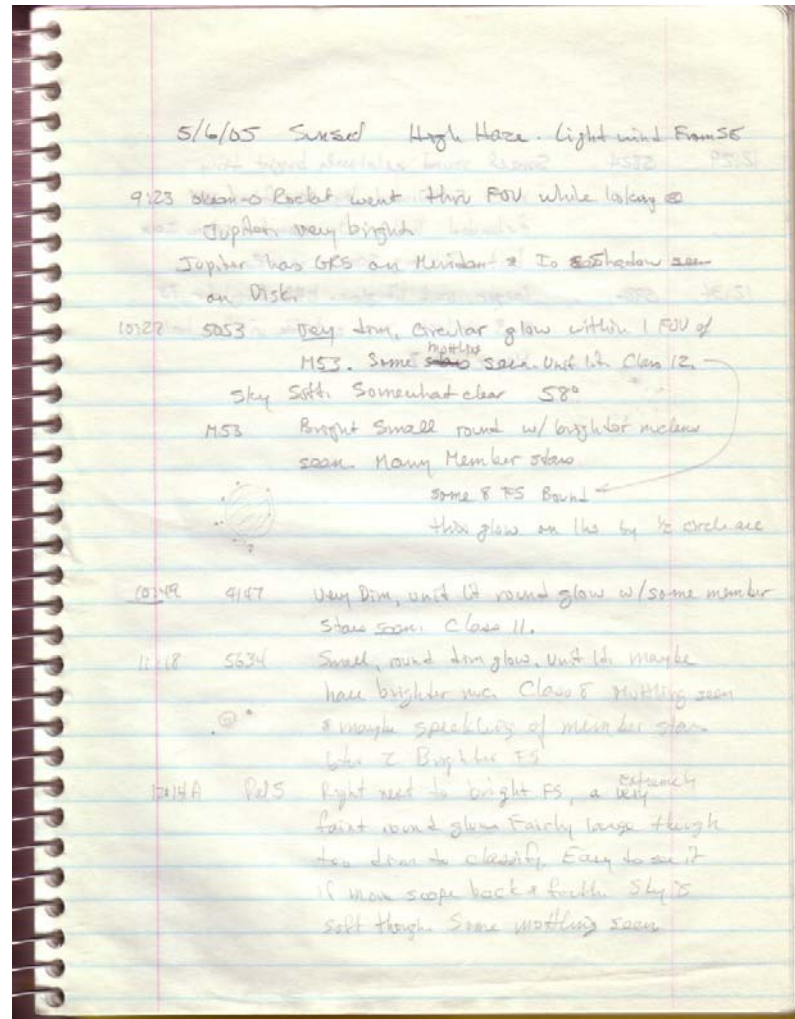 5/6/05 Sunset High Haze. Light wind From SE
9:23 Rocket went thru FOV while looking @
Jupiter. very bright.
Jupiter has GRS on Meridan & Io Shadow seen
on Disk.
10:22 5053 Very dim, circular glow within 1 FOV of
mottling
M53. Some seen. Unif lit. Class 12.
Sky Soft. Somewhat clear 58°
M53 Bright Small round w/ brighter nucleus
seen. Many Member stars
some 8 FS Bound
this glow on by 1/2 circle arc
10:49 4147 Very Dim, unif lit round glow w/some member
Stars seen. Class 11.
11:18 5634 Small, round dim glow. Unif lit. maybe
have brighter nuc. Class 8 Mottling seen
& maybe speckling of member stars
2 Brighter FS
12:14A Pal 5 Right next to bright FS, a very
extremely
faint round glow. Fairly large though
too dim to classify. Easy to see it
if move scope back & forth. Sky is
soft though. Some mottling seen